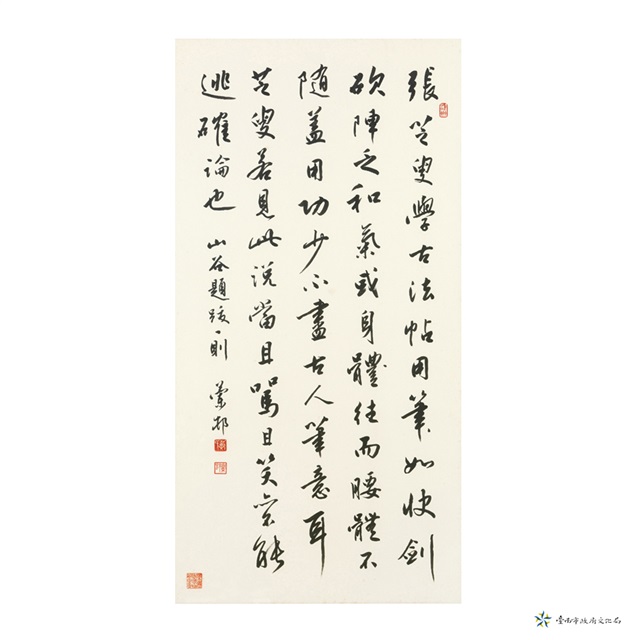 張芸叟學古法帖用筆如快劍
砍陣乏和氣或身體往而腰體不
隨蓋用功少不盡古人筆意耳
芸叟若見此說當且罵且笑能
逃確論也 山谷題跋一則
臺南市政府文化局